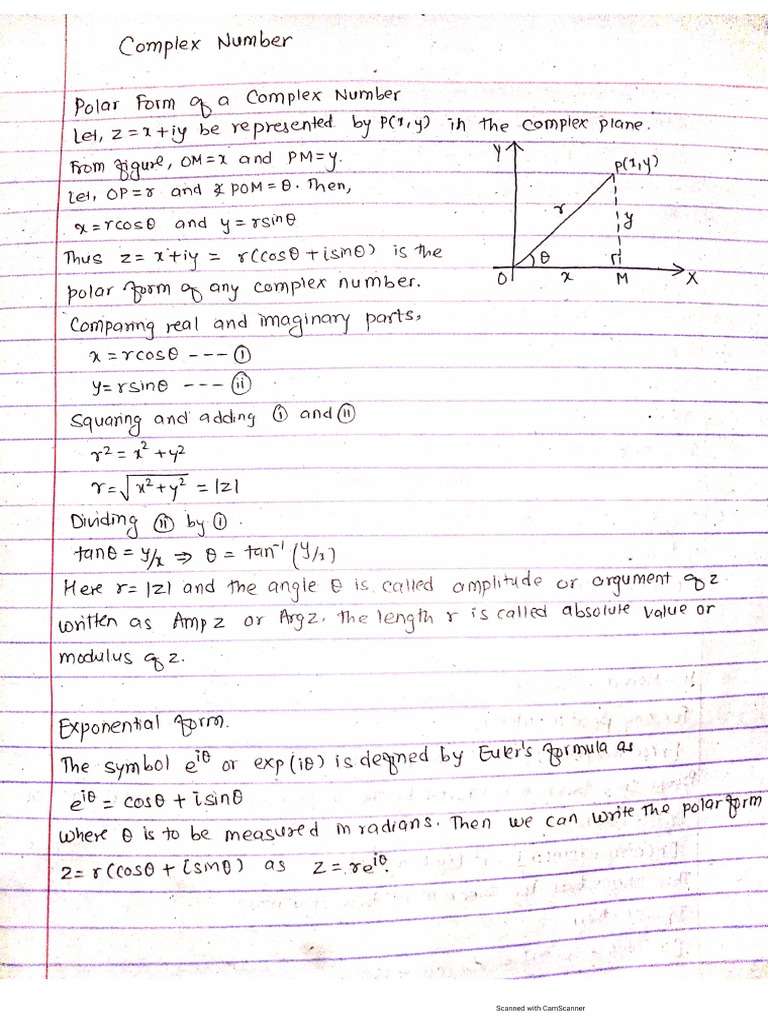 Complex Number
Polar Form of a Complex Number
Let, z = x+iy be represented by P(x,y) in the complex plane.
From figure, OM=x and PM=y.
Let, OP=r and ∠POM=θ. Then,
x=rcosθ and y=rsinθ
Thus z = x+iy = r(cosθ+isinθ) is the
polar form of any complex number.
Y
P(x,y)
r
y
θ
O
x
M
X
Comparing real and imaginary parts,
x=rcosθ --- (i)
y=rsinθ --- (ii)
Squaring and adding (i) and (ii)
r² = x² + y²
r=√(x²+y²) = |z|
Dividing (ii) by (i).
tanθ = y/x ⇒ θ = tan⁻¹(y/x)
Here r= |z| and the angle θ is called amplitude or argument of z
written as Amp z or Arg z. The length r is called absolute value or
modulus of z.
Exponential form.
The symbol e^{iθ} or exp(iθ) is defined by Euler's formula as
e^{iθ} = cosθ + isinθ
where θ is to be measured in radians. Then we can write the polar form
z=r(cosθ + isinθ) as z=re^{iθ}.
Scanned with CamScanner